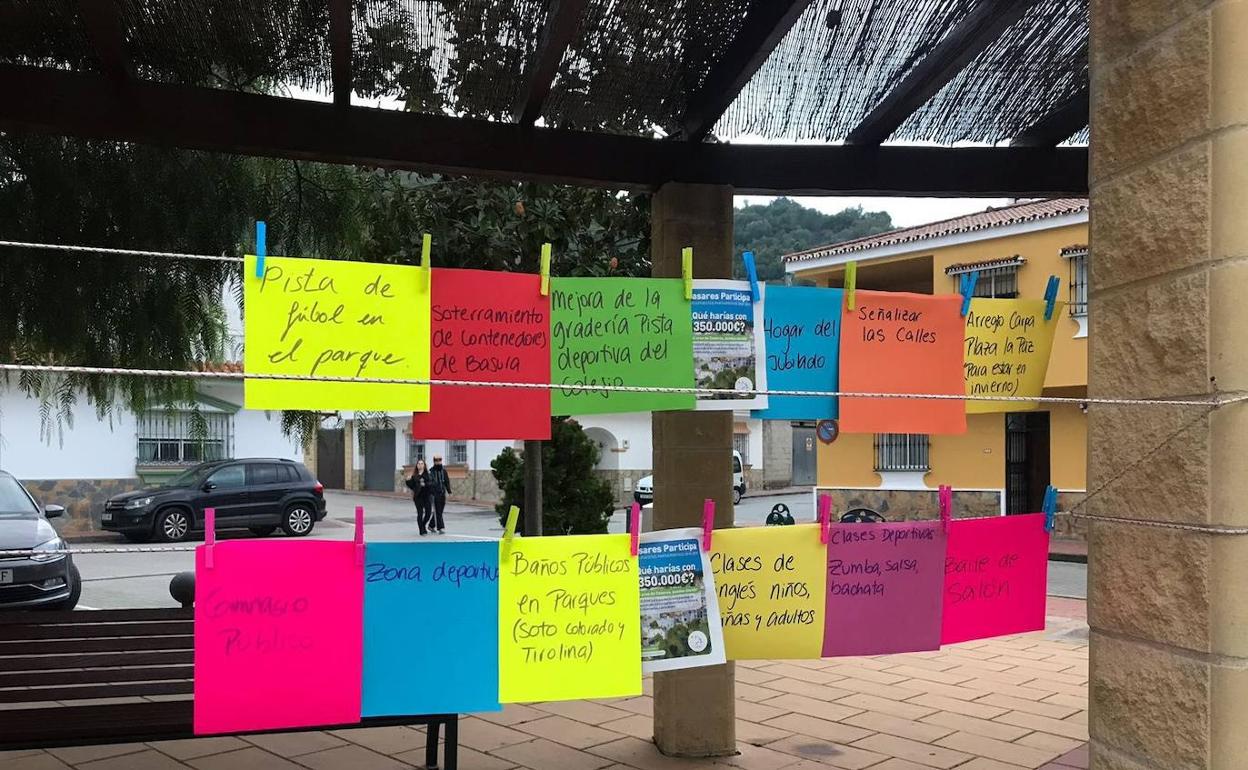 Pista de
fútbol en
el parque.
Soterramiento
de Contenedores
de Basura
Mejora de la
gradería Pista
deportiva del
Colegio
asares Participa
Qué harías con
350.000€?
Hogar del
Jubilado
Señalizar
las Calles
Arreglo Carpa
Plaza la Paz
(Para estar en
invierno)
Gimnasio
Público
Zona deportiva
Baños Públicos
en Parques
(Soto Colorado y
Tirolina)
asares Participa
Qué harías con
350.000€?
Clases de
inglés niños,
niñas y adultos
Clases Deportivas
Zumba, salsa,
bachata
Baile de
Salón